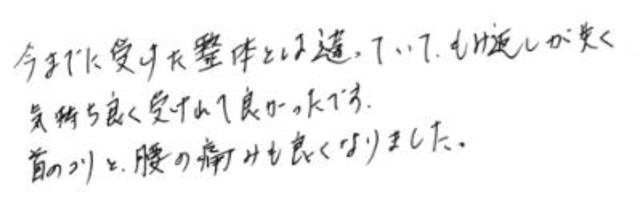 今までに受けた整体とは違っていて、もみ返しが失く
気持ち良く受けれて良かったです.
首のコリと、腰の痛みも良くなりました。